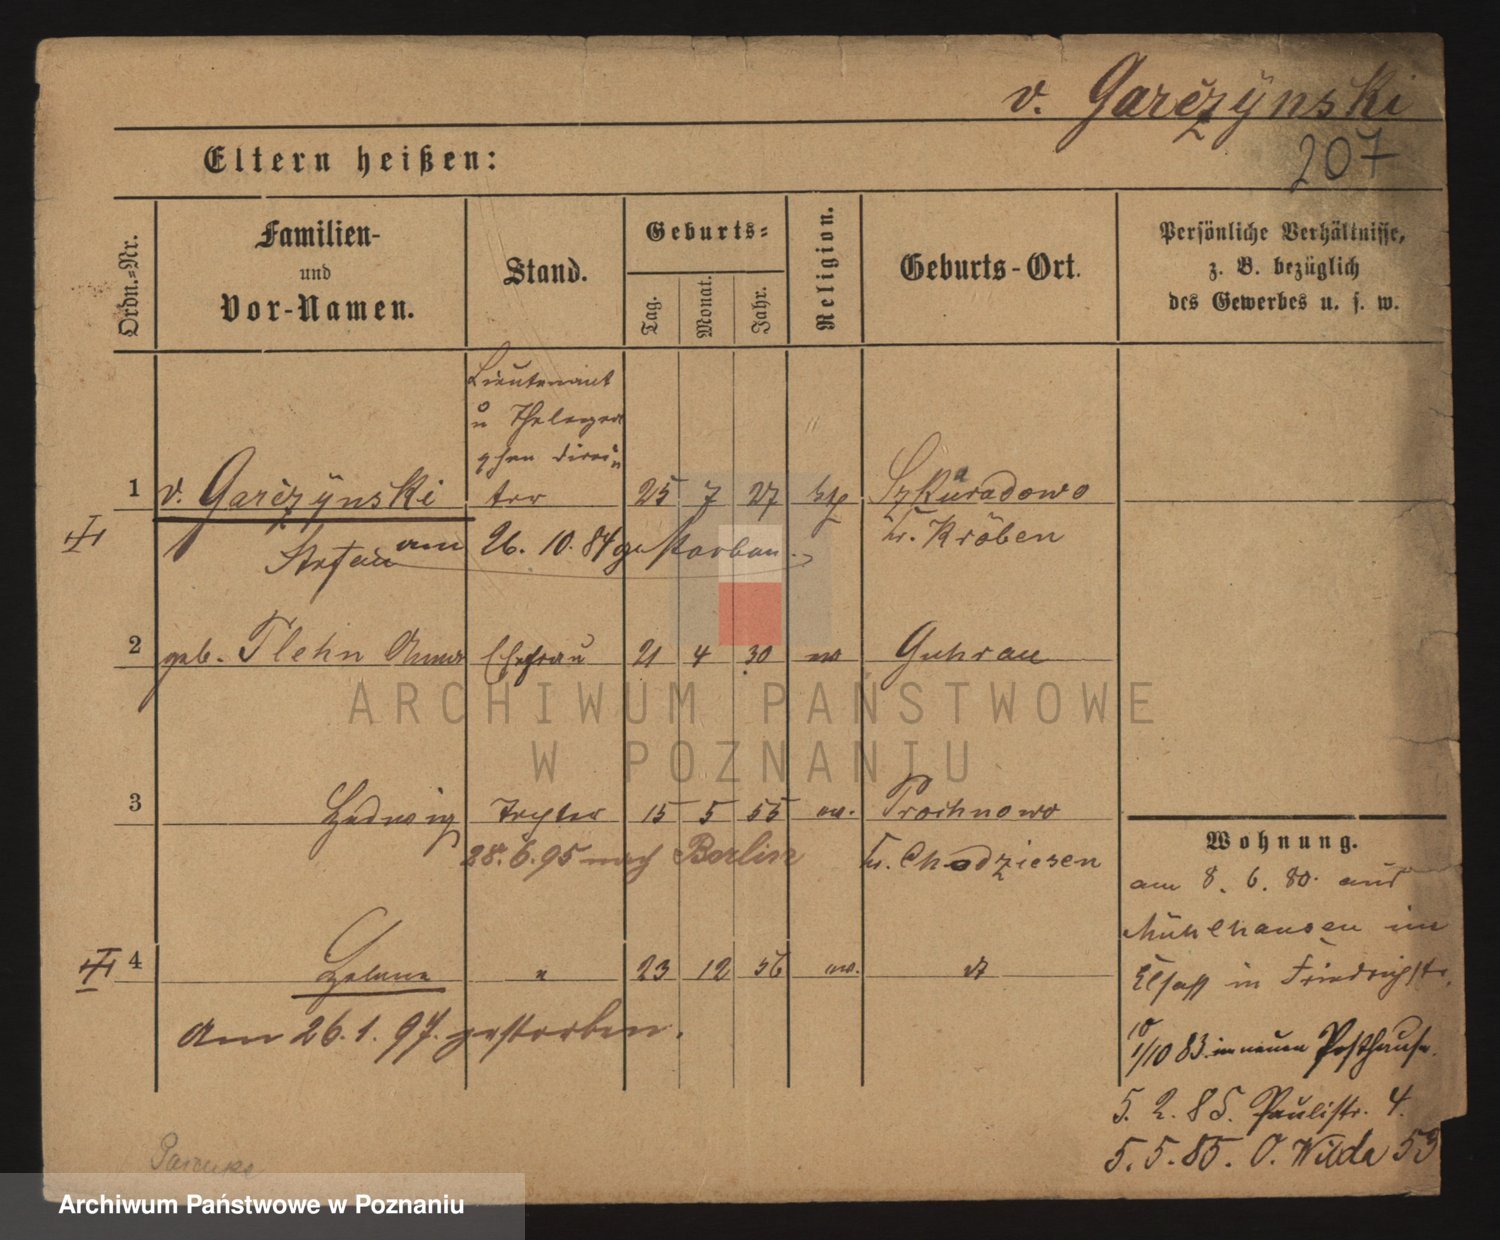 v. Garczÿnski
207
Eltern heißen:
Ordn.-Nr.
Familien-
und
Vor-Namen.
Stand.
Geburts-
Tag.
Monat.
Jahr.
Religion.
Geburts-Ort.
Persönliche Verhältnisse,
z. B. bezüglich
des Gewerbes u. s. w.
Lieutenant
u
1 v. Garczÿnski 25 7 27 Szkaradowo
Stefan am 26. 10. 84 gestorben. Kr. Kröben
2 geb. Plehn Anna Ehefrau 21 4 30 Guhrau
3 Hedwig Tochter 15 5 55 ev. Prochnowo
28. 6. 95 nach Berlin Kr. Chodziesen
4 Helene " 23 12 56 ev.
am 26. 1. 97. gestorben.
Wohnung.
am 8. 6. 80. aus
Mühlhausen im
Elsaß in Friedrichstr.
1/10 83 im neuen Posthause.
5. 2. 85. Paulistr. 4.
5. 5. 85. O. Wilda 53
ARCHIWUM PAŃSTWOWE
W POZNANIU
Archiwum Państwowe w Poznaniu